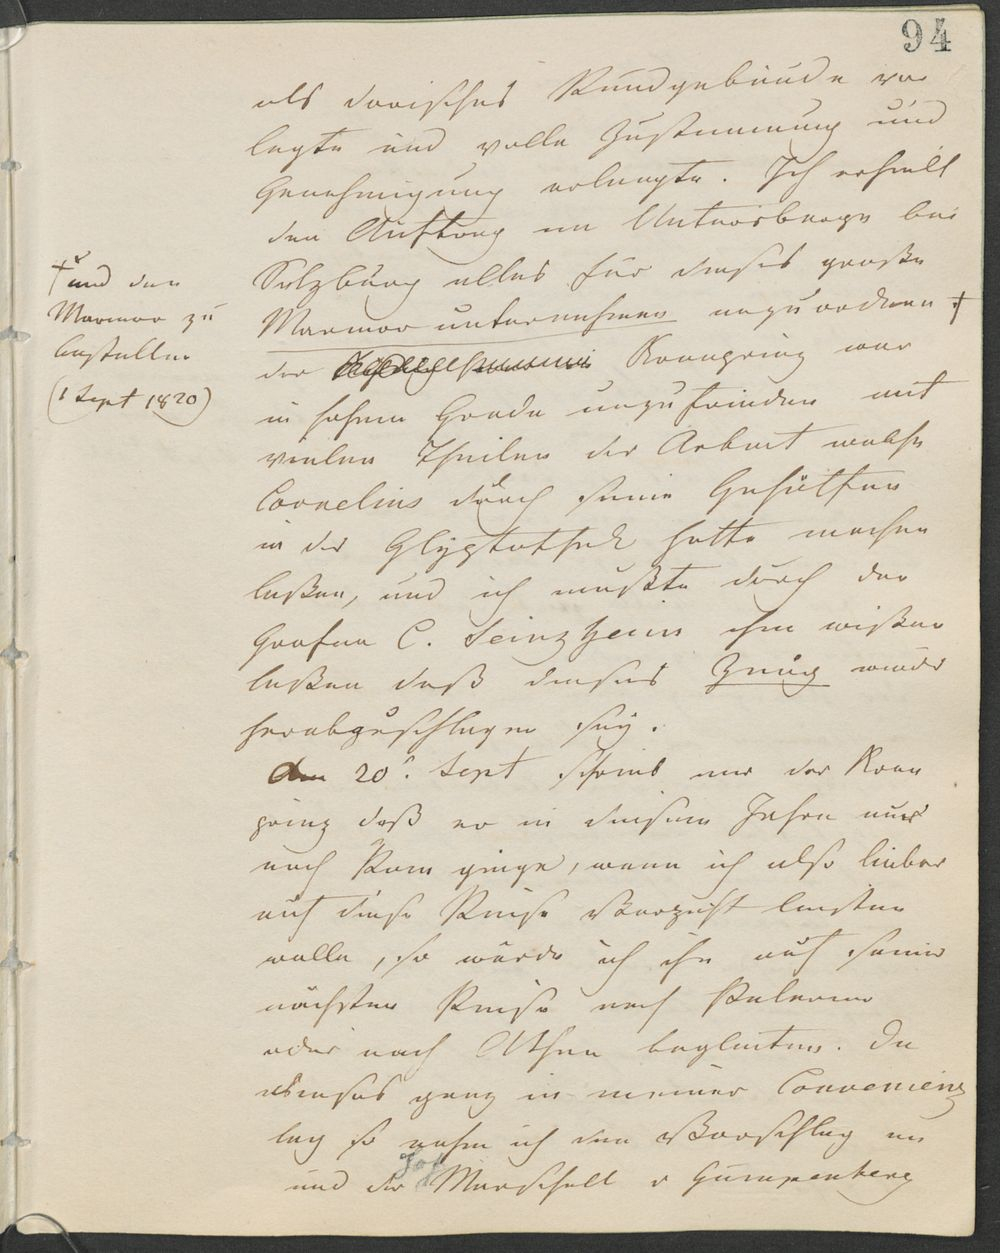 94
als dorisches Rundgebäude vor
legte und volle Zustimmung und
Genehmigung erlangte. Ich erhielt
den Auftrag im Untersberge bei
Salzburg alles für dieses große
Marmor unternehmen anzuordnen †
† und den
Marmor zu
bestellen
(1 Sept 1820)
der Kronprinz war
in hohem Grade unzufrieden mit
vielen Theilen der Arbeit welche
Cornelius durch seine Gehülfen
in der Glyptothek hatte machen
laßen, und ich mußte durch den
Grafen C. Seinzheim ihn wißen
laßen daß dieses Zeug wieder
herabzuschlagen sey.
Am 20t Sept schrieb mir der Kron
prinz daß er in diesem Jahre nur
nach Rom ginge, wenn ich also lieber
auf diese Reise Verzicht leisten
wolle, so würde ich ihn auf seiner
nächsten Reise nach Palermo
oder nach Athen begleiten. Da
dieses ganz in meiner Convenienz
lag so nahm ich den Vorschlag an
und der Hof Marschall v Gumppenberg